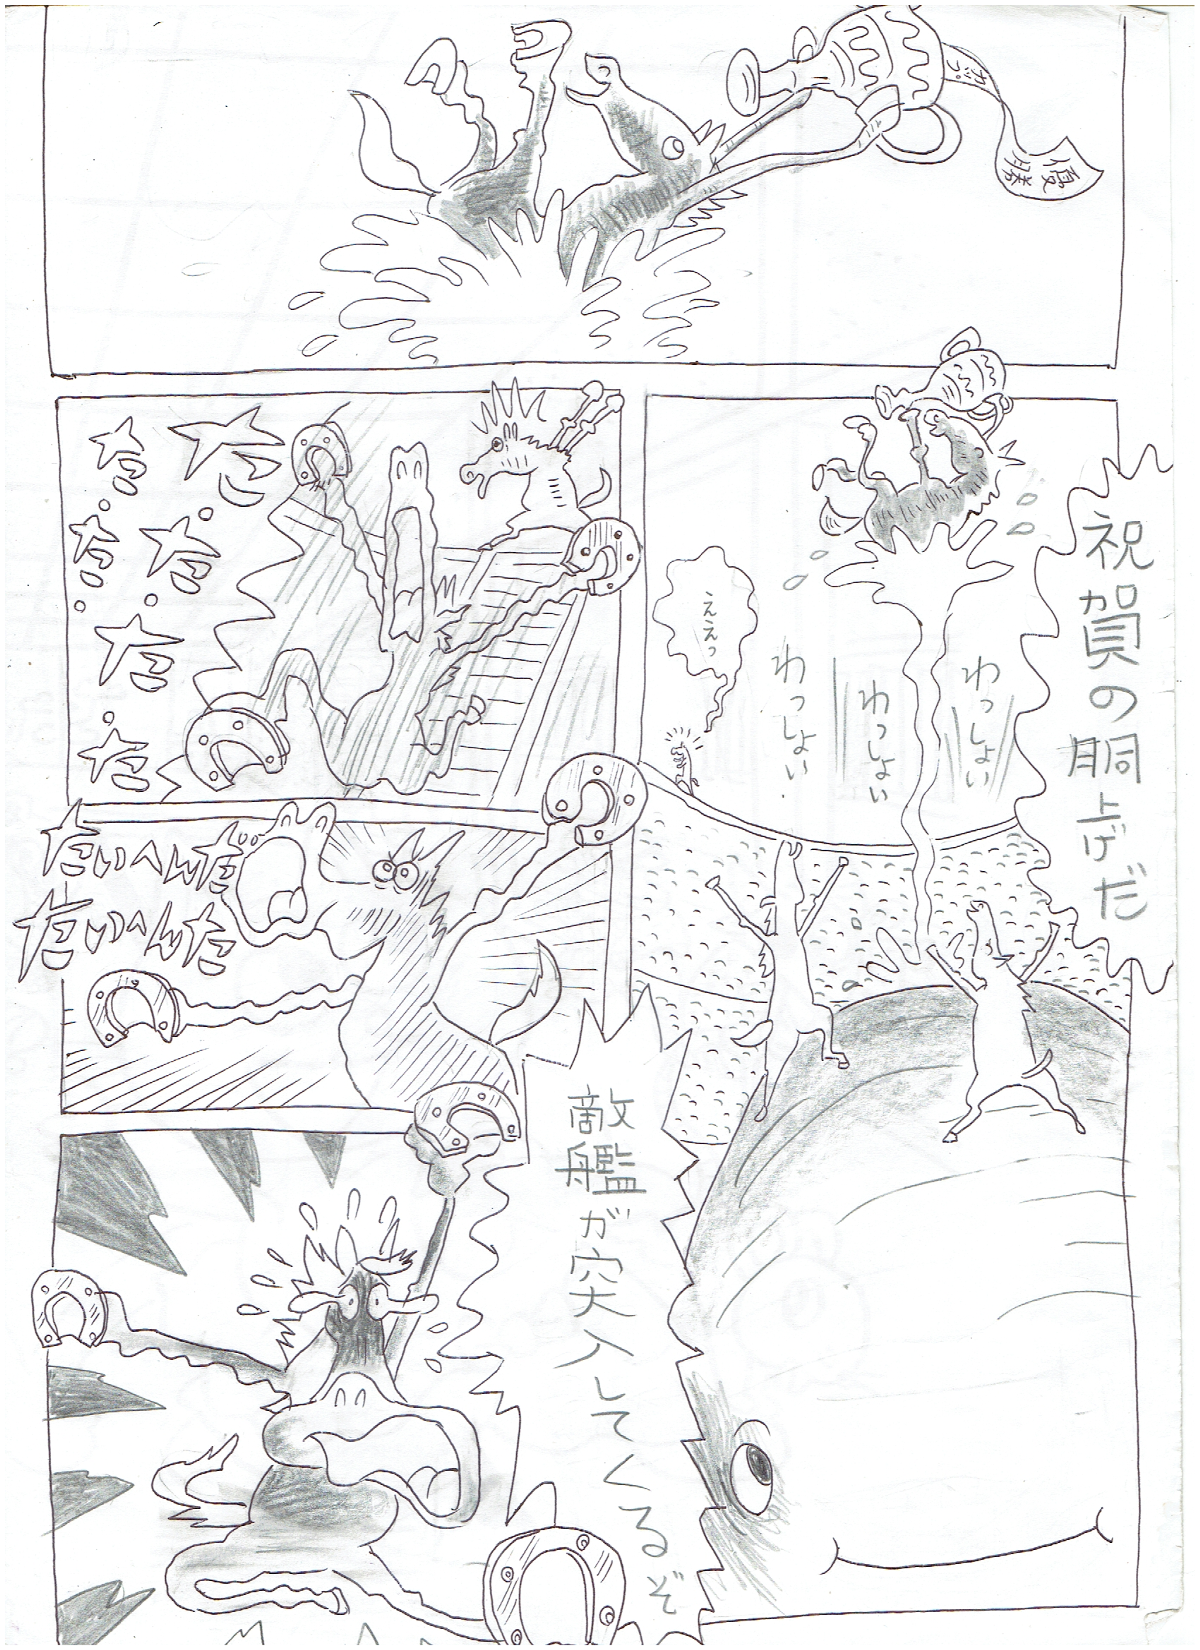 優勝
カップ
祝賀の胴上げだ
わっしょい
わっしょい
わっしょい
ええっ
た
た
た
た
た
た
たいへんだ
たいへんだ
敵艦が突入してくるぞ